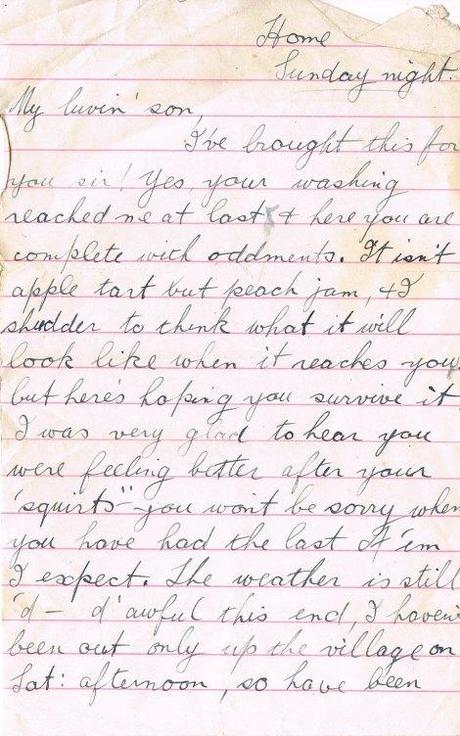 Home
Sunday night.
My luvin' son,
I've brought this for
you sir! Yes, your washing
reached me at last & here you are
complete with oddments. It isn't
apple tart but peach jam, & I
shudder to think what it will
look like when it reaches you,
but here's hoping you survive it.
I was very glad to hear you
were feeling better after your
'squirts" - you won't be sorry when
you have had the last of 'em
I expect. The weather is still
'd - d' awful this end, I haven't
been out only up the village on
Sat: afternoon, so have been